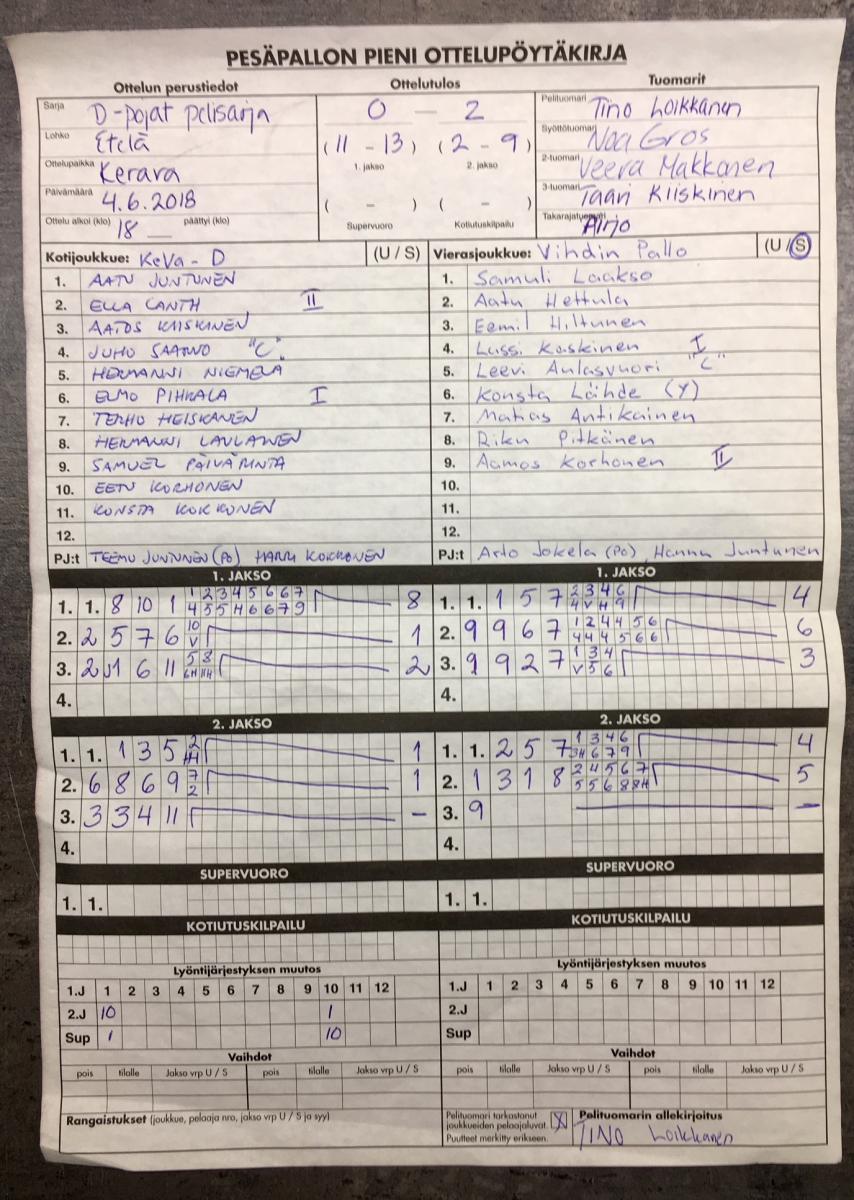 PESÄPALLON PIENI OTTELUPÖYTÄKIRJA
Ottelun perustiedot Ottelutulos Tuomarit
Sarja D-pojat pelisarja
Lohko Etelä
Ottelupaikka Kerava
Päivämäärä 4.6.2018
Ottelu alkoi (klo) 18 päättyi (klo)
0 — 2
(11 - 13) (2 - 9)
1. jakso 2. jakso
( - ) ( - )
Supervuoro Kotiutuskilpailu
Pelituomari Tino Loikkanen
Syöttötuomari Noa Gros
2-tuomari Veera Makkonen
3-tuomari Taavi Kiiskinen
Takarajatuomari
Kotijoukkue: KeVa - D (U / S)
1. AATU JUNTUNEN
2. ELLA CANTH II
3. AATOS KIISKINEN
4. JUHO "C"
5. HERMANNI NIEMELÄ
6. ELMO PIHKALA I
7. TERHO HEISKANEN
8. HERMANNI LAULAINEN
9. SAMUEL PÄIVÄRINTA
10. EETU KORHONEN
11. KONSTA KOKKONEN
12.
PJ:t TEEMU JUNTUNEN (PO) HARRI KOKKONEN
Vierasjoukkue: Vihdin Pallo (U / S)
1. Samuli Laakso
2. Aatu Hettula
3. Eemil Hiltunen
4. Lassi Koskinen I
5. Leevi Aulasvuori "C"
6. Konsta Lähde (Y)
7. Matias Antikainen
8. Riku Pitkänen
9. Aamos Korhonen II
10.
11.
12.
PJ:t Arto Jokela (PO), Hannu Juntunen
1. JAKSO
1. 1. 8 10 1 8
2. 2 5 7 6 1
3. 2 1 6 11 2
4.
1. JAKSO
1. 1. 1 5 7 4
2. 9 9 6 7 6
3. 9 9 2 7 3
4.
2. JAKSO
1. 1. 1 3 5 1
2. 6 8 6 9 1
3. 3 3 4 11 -
4.
2. JAKSO
1. 1. 2 5 7 4
2. 1 3 1 8 5
3. 9 -
4.
SUPERVUORO
1. 1.
SUPERVUORO
1. 1.
KOTIUTUSKILPAILU
KOTIUTUSKILPAILU
Lyöntijärjestyksen muutos
1.J 1 2 3 4 5 6 7 8 9 10 11 12
2.J 10 1
Sup 1 10
Lyöntijärjestyksen muutos
1.J 1 2 3 4 5 6 7 8 9 10 11 12
2.J
Sup
Vaihdot
pois tilalle Jakso vrp U / S pois tilalle Jakso vrp U / S
Vaihdot
pois tilalle Jakso vrp U / S pois tilalle Jakso vrp U / S
Rangaistukset (joukkue, pelaaja nro, jakso vrp U / S ja syy)
Pelituomari tarkastanut
joukkueiden pelaajaluvat. X
Puutteet merkitty erikseen.
Pelituomarin allekirjoitus
TINO Loikkanen